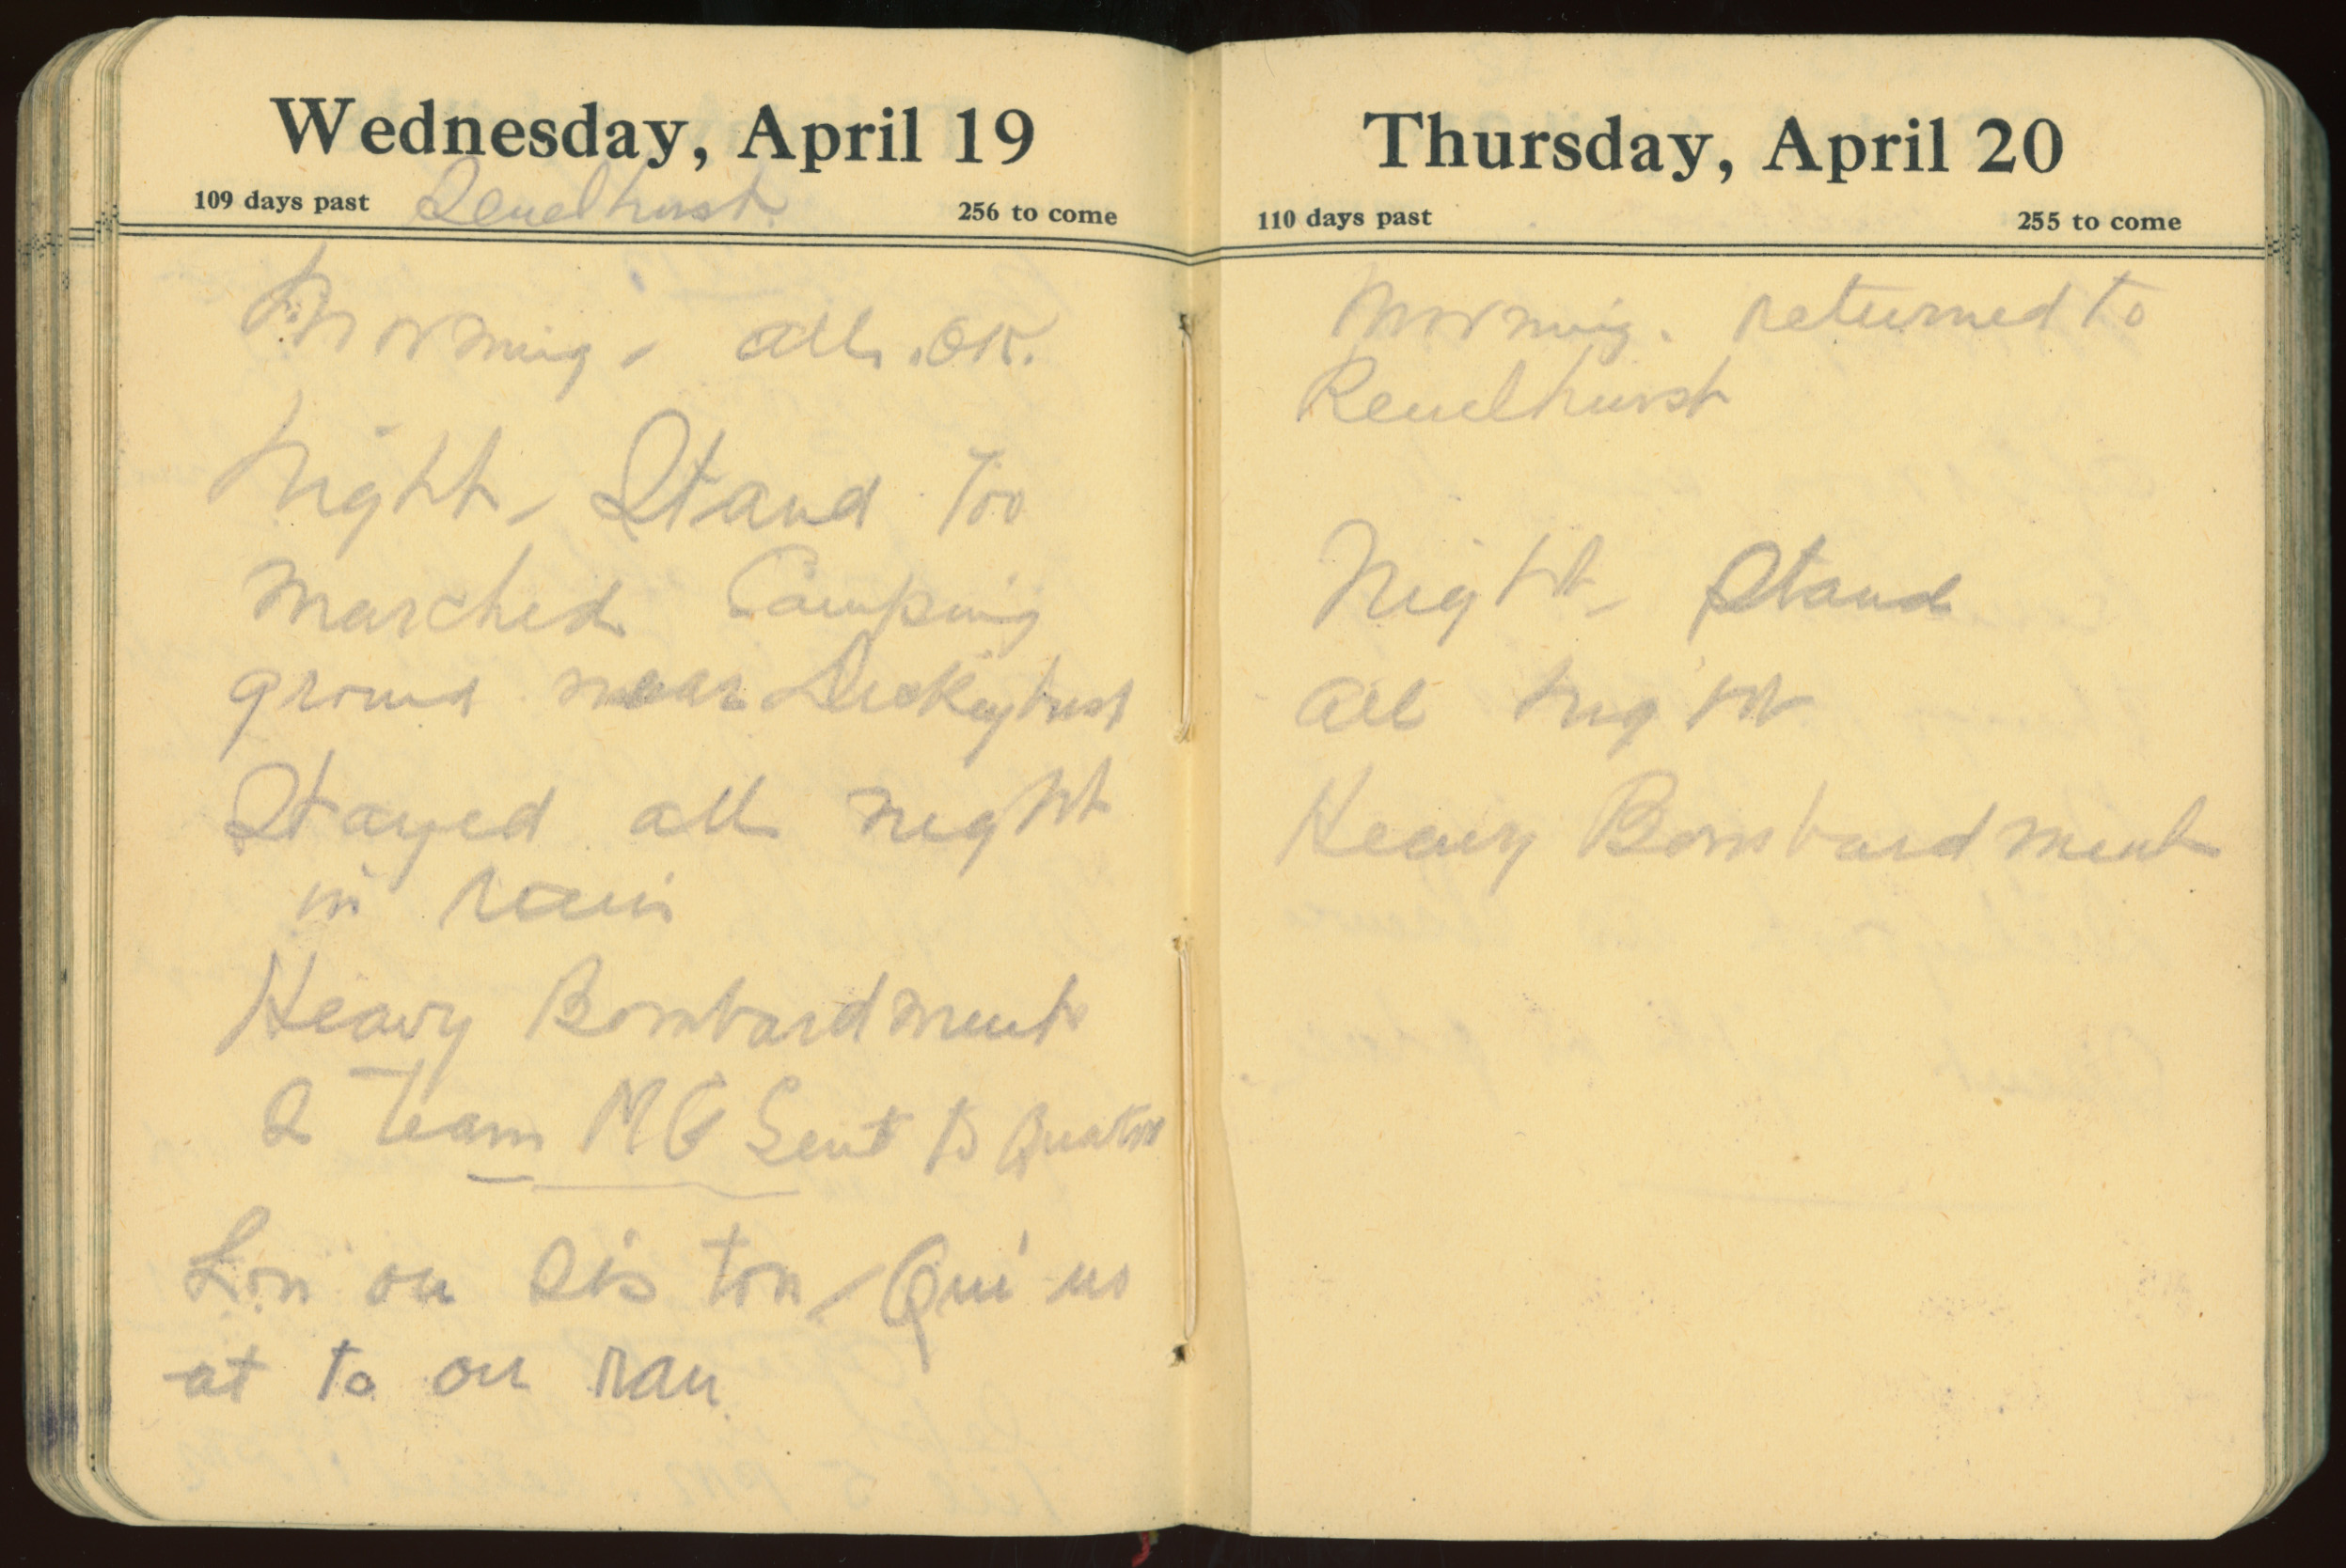 Wednesday, April 19
109 days past Reuelhurst 256 to come
Morning - all. OK.
Night - Stand Too
marched Camping
ground near Dickeybust
Stayed all night
in rain
Heavy Bombardment
2 Team MG Sent to
Lon ou Dis ton - Qui
at to ou rau
Thursday, April 20
110 days past 255 to come
Morning. returned to
Reuelhurst
Night - Stand
all night
Heavy Bombardment